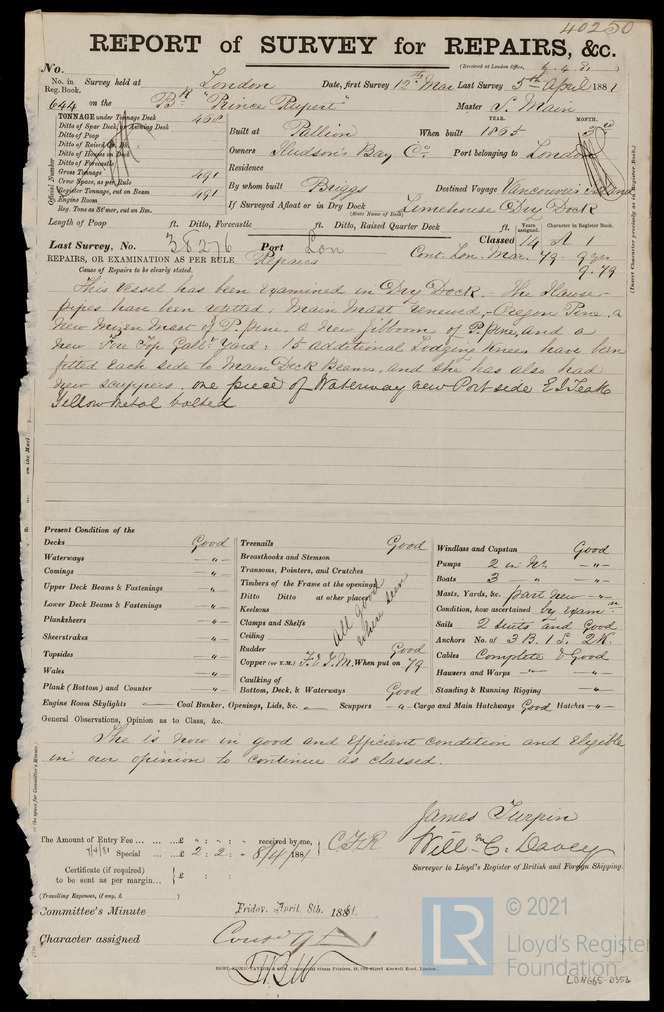 40250
REPORT of SURVEY for REPAIRS, &c.
(Received at London Office, 9.4.81)
No.
No. in Reg. Book. Survey held at London Date, first Survey 12th Mar Last Survey 5th April 1881
644 on the Bk "Prince Rupert" Master S. Main
TONNAGE under Tonnage Deck 468
Ditto of Spar Deck, or Awning Deck
Ditto of Poop
Ditto of Raised Qr. Dk.
Ditto of Houses on Deck
Ditto of Forecastle
Gross Tonnage 491
Crew Space, as per Rule
Register Tonnage, cut on Beam 491
Engine Room
Reg. Tons as S'mer, cut on Bm.
Official Number
YEAR. MONTH.
Built at Pallion When built 1865
Owners Hudson's Bay Co. Port belonging to London
Residence
By whom built Briggs Destined Voyage Vancouvers Island
If Surveyed Afloat or in Dry Dock Limehouse Dry Dock
(State Name of Dock)
Length of Poop ft. Ditto, Forecastle ft. Ditto, Raised Quarter Deck ft.
Years assigned. Character in Register Book.
Last Survey, No. 38276 Port Lon Classed 14 A 1
REPAIRS, OR EXAMINATION AS PER RULE Repairs Cont. Lon. Mar. 79 - 9 yrs
Cause of Repairs to be clearly stated. 9.79
This vessel has been examined in Dry Dock. The Hawse-
pipes have been refitted, Main Mast renewed, Oregon Pine, a
new Mizen Mast of P. Pine, a new jibboom of P. pine, and a
new Fore Top Gallt Yard: 15 additional Lodging Knees have been
fitted each side to Main Deck Beams, and she has also had
new scuppers, one piece of Waterway new Port side E I Teak
Yellow metal bolted
Present Condition of the
Decks Good
Waterways -"-
Comings -"-
Upper Deck Beams & Fastenings -"-
Lower Deck Beams & Fastenings -"-
Planksheers -"-
Sheerstrakes -"-
Topsides -"-
Wales -"-
Plank (Bottom) and Counter -"-
Treenails Good
Breasthooks and Stemson
Transoms, Pointers, and Crutches
Timbers of the Frame at the openings
Ditto Ditto at other places
Keelsons
Clamps and Shelfs
Ceiling
all good where seen
Rudder Good
Copper (or Y.M.) F. & Y.M. When put on 79
Caulking of Bottom, Deck, & Waterways Good
Windlass and Capstan Good
Pumps 2 in No. -"-
Boats 3 " -"-
Masts, Yards, &c. part new -"-
Condition, how ascertained by Examn
Sails 2 suits and Good
Anchors No. of 3 B. 1 S. 2 K.
Cables Complete & Good
Hawsers and Warps -"- -"-
Standing & Running Rigging -"-
Engine Room Skylights — Coal Bunker, Openings, Lids, &c. — Scuppers -"- Cargo and Main Hatchways Good Hatches -"-
General Observations, Opinion as to Class, &c.
She is now in good and Efficient condition and Eligible
in our opinion to continue as classed.
James Turpin
Willm C. Davey
Surveyor to Lloyd's Register of British and Foreign Shipping.
The Amount of Entry Fee ... £ " : " : " received by me,
7/4/81 Special ... £ 2 : 2 : - 8/4/1881 C F R
Certificate (if required) to be sent as per margin... £ :
(Travelling Expenses, if any, £ )
Committee's Minute Friday, April 8th, 1881.
Character assigned
© 2021
LR
Lloyd's Register
Foundation
LON665-0353